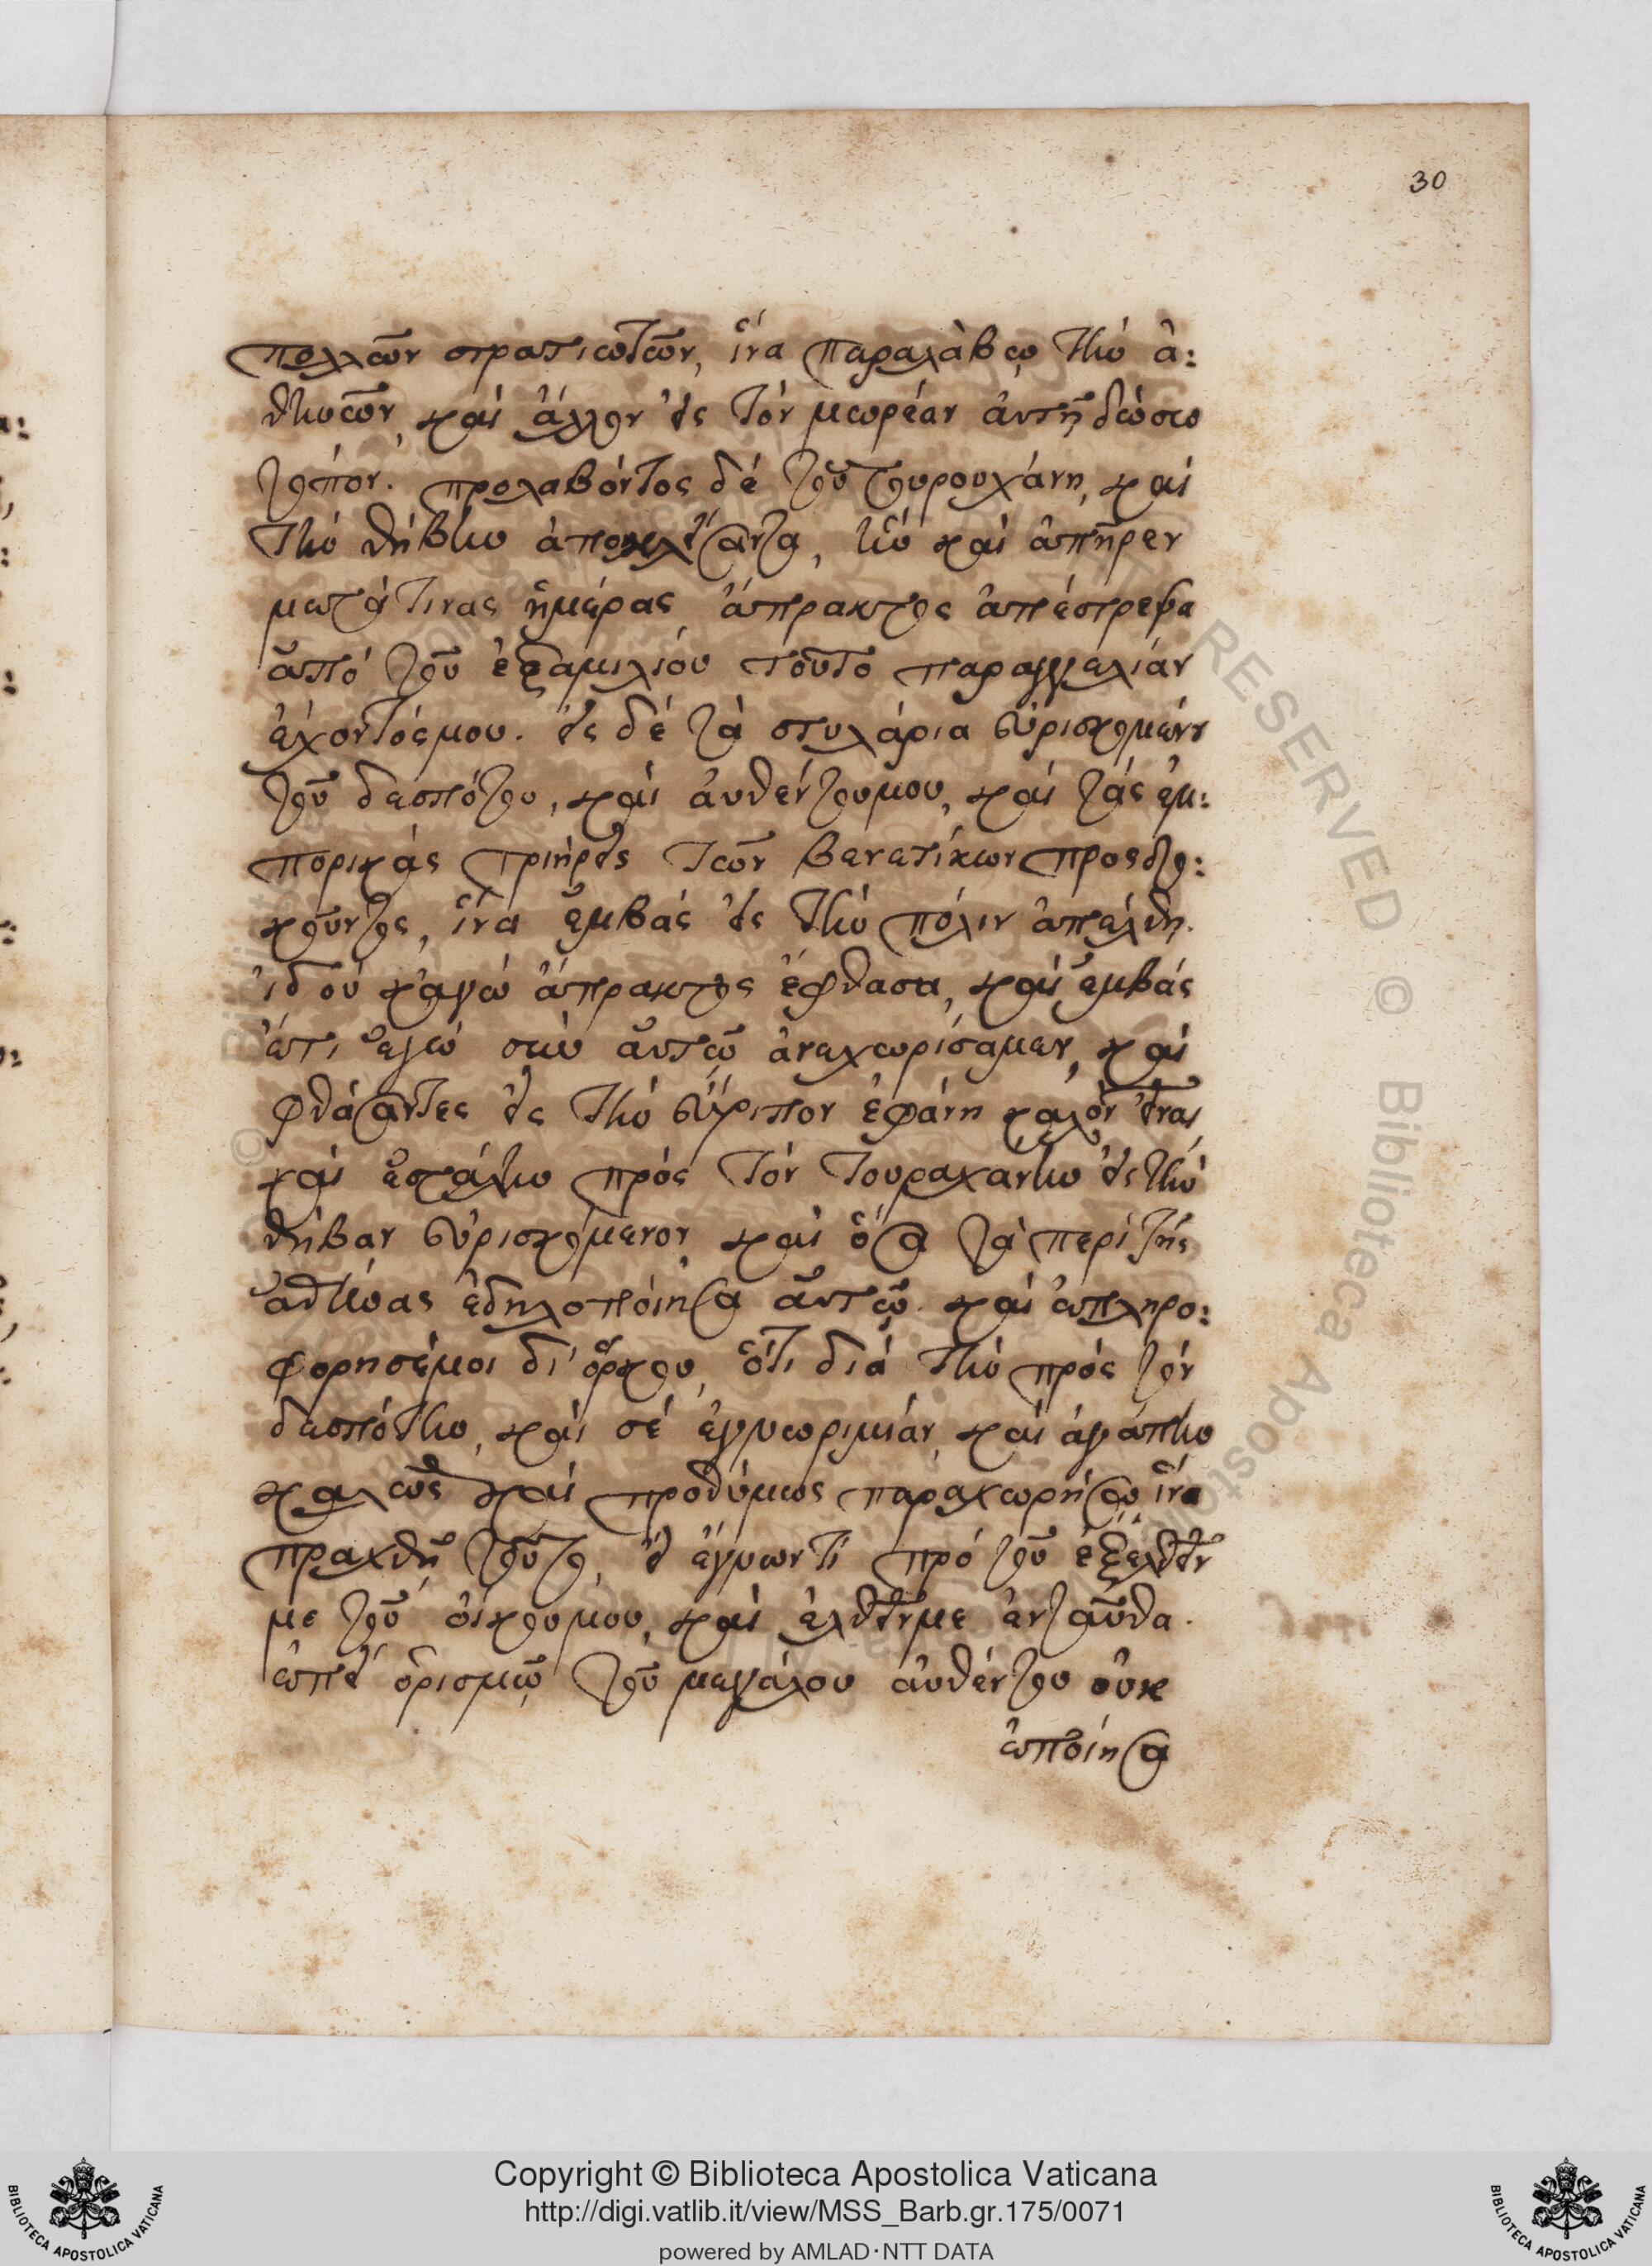 30
πολλῶν στρατιωτῶν, ἵνα παραλάβω τὴν ἀ:
θηνῶν, καὶ ἄλλον εἰς τὸν μωρέαν ἀντῇ δώσω
τόπον. προλαβόντος δὲ τοῦ τουρουχάνη, καὶ
τὴν θήβην ἀποκλείσαντα, ἣν καὶ ἀπῆρεν
μετά τινας ἡμέρας ἄπρακτος ἀπέστρεψα
ἀπὸ τοῦ ἑξαμιλίου τοῦτο παραγγελίαν
ἔχοντός μου. εἰς δὲ τὰ στυλάρια εὑρισκομένου
τοῦ δεσπότου, καὶ αὐθέντου μου, καὶ τὰς ἐμ:
πορικὰς τριήρεις τῶν βενετίκων προσδο:
κοῦντος, ἵνα ἐμβὰς εἰς τὴν πόλιν ἀπέλθη.
ἰδοὺ κἀγὼ ἄπρακτος ἔφθασα, καὶ ἐμβὰς
ἔτι ἐγὼ σὺν αὐτῷ ἀνεχωρίσαμεν, καὶ
φθάσαντες εἰς τὴν εὔριπον ἐφάνη καλὸν εἶναι
καὶ ἐστάλην πρὸς τὸν τουραχανην εἰς τὴν
θήβαν εὑρισκόμενον καὶ ὅσα τὰ περὶ τῆς
ἀθήνας ἐδηλοποίησα αὐτῷ. καὶ ἐπληρο:
φορησέ μοι δι' ὅρκου, ὅτι διὰ τὴν πρὸς τὸν
δεσπότην, καὶ σὲ ἐγνωριμίαν, καὶ ἀγάπην
καλῶς καὶ προθύμως παραχωρήσω ἵνα
πραχθῇ τοῦτο, εἰ ἔγνων τί πρὸ τοῦ ἐξελθεῖν
με τοῦ οἴκου μου, καὶ ἐλθεῖν με ἐνταῦθα.
ἐπεὶ ὁρισμῷ τοῦ μεγάλου αὐθέντου οὐκ
ἐποίησα
Copyright © Biblioteca Apostolica Vaticana
http://digi.vatlib.it/view/MSS_Barb.gr.175/0071
powered by AMLAD·NTT DATA
BIBLIOTECA APOSTOLICA VATICANA
BIBLIOTECA APOSTOLICA VATICANA